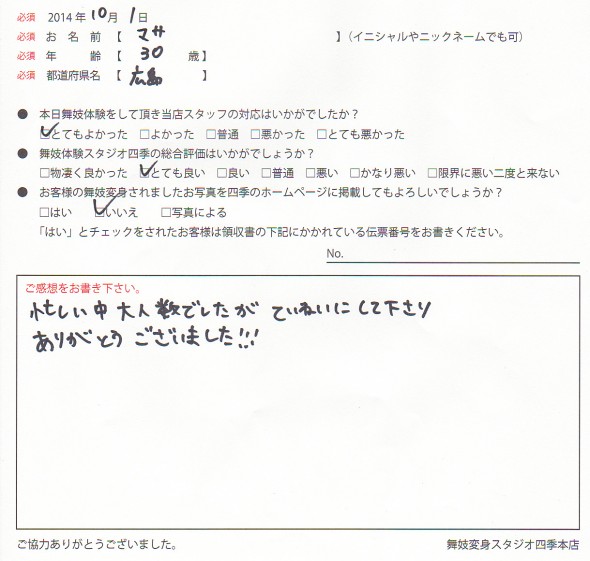 必須 2014年 10月 1日
必須 お名前【 マサ 】(イニシャルやニックネームでも可)
必須 年齢【 30 歳】
必須 都道府県名【 広島 】
● 本日舞妓体験をして頂き当店スタッフの対応はいかがでしたか?
☑とてもよかった □よかった □普通 □悪かった □とても悪かった
● 舞妓体験スタジオ四季の総合評価はいかがでしょうか?
□物凄く良かった ☑とても良い □良い □普通 □悪い □かなり悪い □限界に悪い二度と来ない
● お客様の舞妓変身されましたお写真を四季のホームページに掲載してもよろしいでしょうか?
□はい ☑いいえ □写真による
「はい」とチェックをされたお客様は領収書の下記にかかれている伝票番号をお書きください。
No.
ご感想をお書き下さい。
忙しい中 大人数でしたが ていねいにして下さり
ありがとう ございました!!!
ご協力ありがとうございました。 舞妓変身スタジオ四季本店